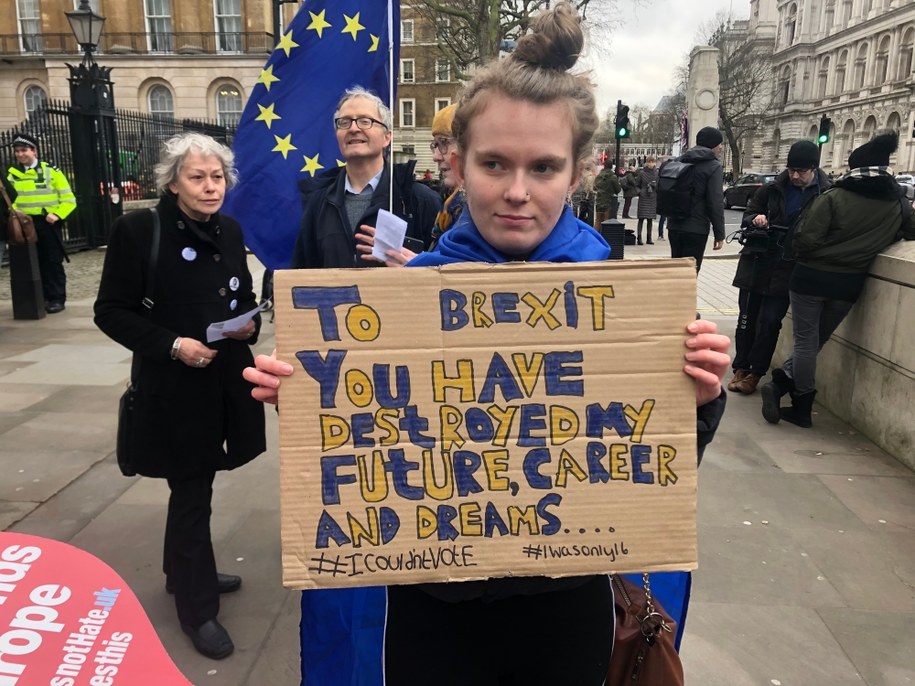 To BREXiT
YOU HAVE
DEStROYED MY
FUtURE, CAREER
AND DREAMS....
#ICouldn'tVOTE #IWasonly16
rope
snotHate.uk
esthis